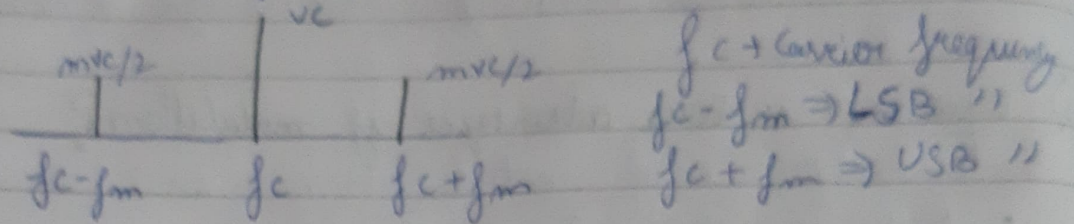 vc
mvc/2
mvc/2
fc-fm
fc
fc+fm
fc → Carrior frequency
fc-fm ⇒ LSB "
fc+fm ⇒ USB "